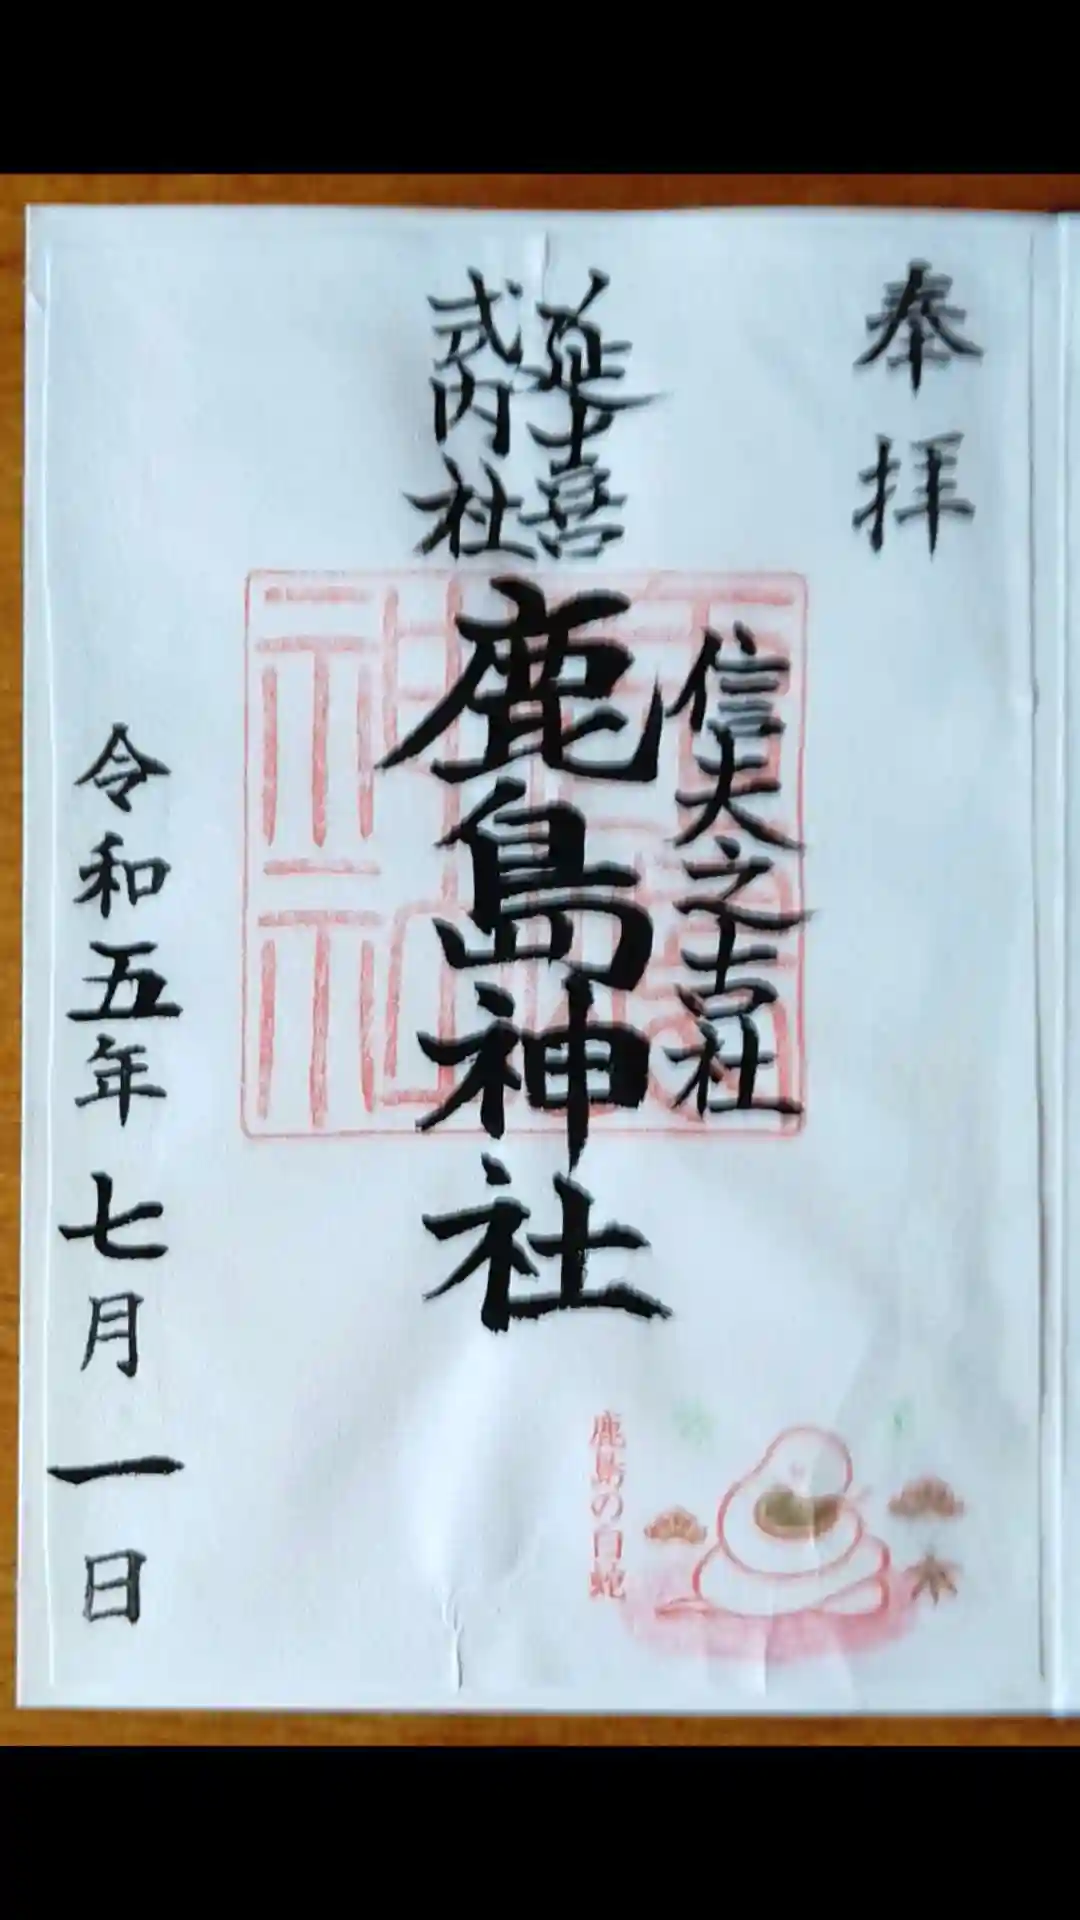 奉拝
信夫之古社
延喜
式内社
鹿島神社
鹿島の白蛇
令和五年七月一日